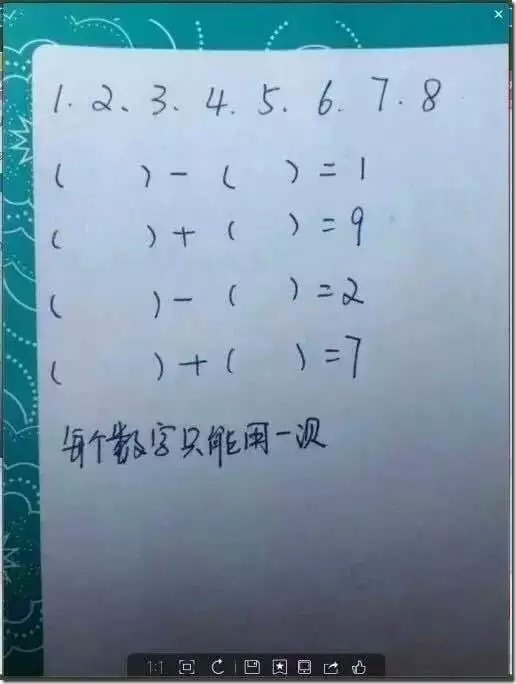 1. 2、3、4. 5. 6. 7. 8
( ) - ( ) = 1
( ) + ( ) = 9
( ) - ( ) = 2
( ) + ( ) = 7
每个数字只能用一次
1:1